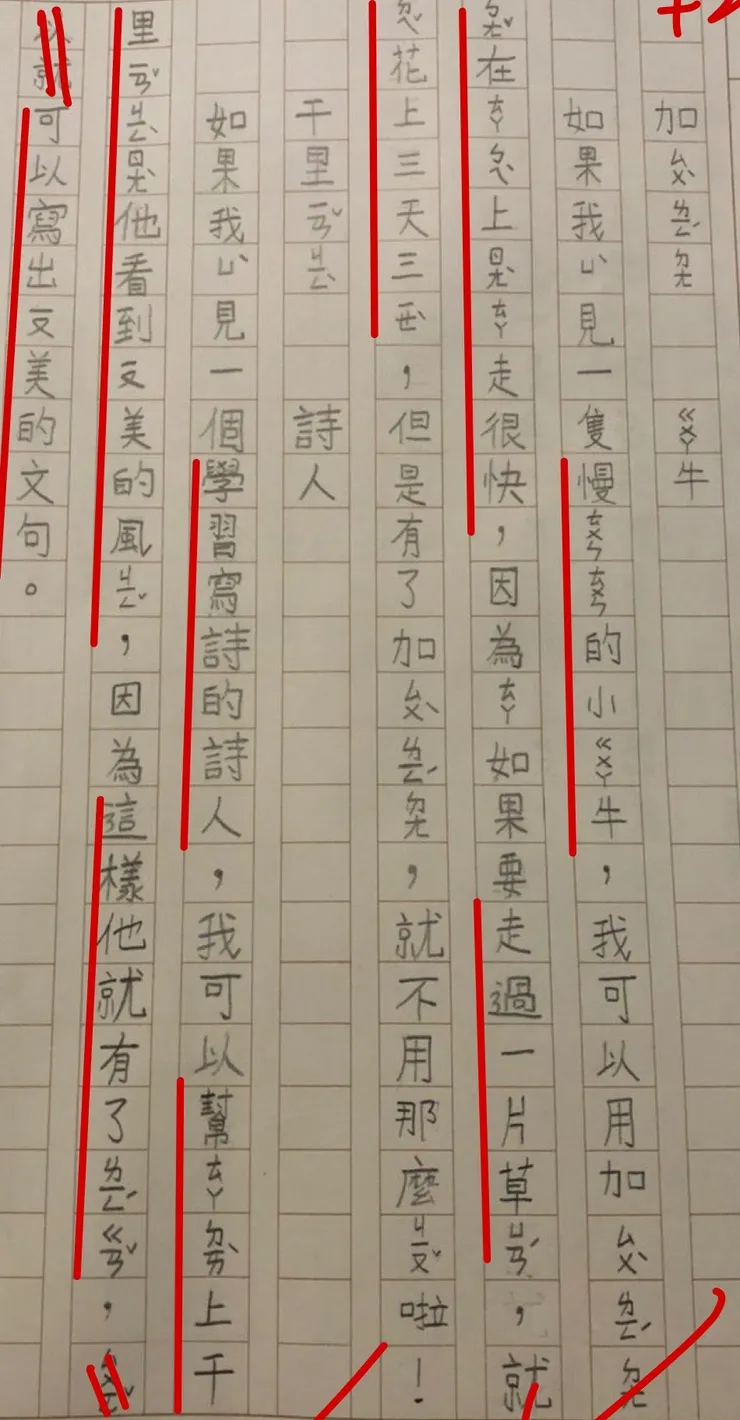 加ㄙㄨˋㄌㄧㄥˊㄉㄤ ㄍㄨㄚ牛
如果我ㄩˋ見一隻慢ㄊㄨㄣㄊㄨㄣ的小ㄍㄨㄚ牛，我可以用加ㄙㄨˋㄌㄧㄥˊㄉㄤ
在ㄊㄚㄕㄣ上ㄖㄤˋㄊㄚ走很快，因為ㄊㄚ如果要走過一片草ㄩㄢˊ，就
花上三天三ㄧㄝˋ，但是有了加ㄙㄨˋㄌㄧㄥˊㄉㄤ，就不用那麼ㄐㄧㄡˇ啦！
千里ㄧㄢˇㄐㄧㄥˋ 詩人
如果我ㄩˋ見一個學習寫詩的詩人，我可以幫ㄊㄚㄉㄞˋ上千
里ㄧㄢˇㄐㄧㄥˋㄖㄤˋ他看到ㄧㄡ美的風ㄐㄧㄥˇ，因為這樣他就有了ㄌㄧㄥˊㄍㄢˇ，
以就可以寫出ㄧㄡ美的文句。